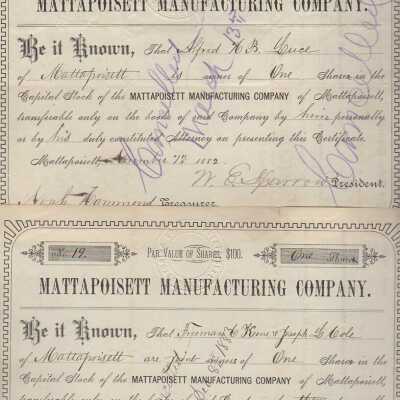 MATTAPOISETT MANUFACTURING COMPANY.
Be it Known, That Alfred H B. Luce
of Mattapoisett is owner of One Share in the
Capital Stock of the MATTAPOISETT MANUFACTURING COMPANY of Mattapoisett,
transferable only on the books of said Company by personally
or by his duly constituted Attorney on presenting this Certificate.
Mattapoisett, 12 1882
W. E. Sparrow President.
Noah Hammond Treasurer
Cancelled
Cancelled
No. 19. PAR VALUE OF SHARES, $100. One Share
MATTAPOISETT MANUFACTURING COMPANY.
Be it Known, That Freeman C. & Joseph L. Cole
of Mattapoisett are joint owners of One Share in the
Capital Stock of the MATTAPOISETT MANUFACTURING COMPANY of Mattapoisett,